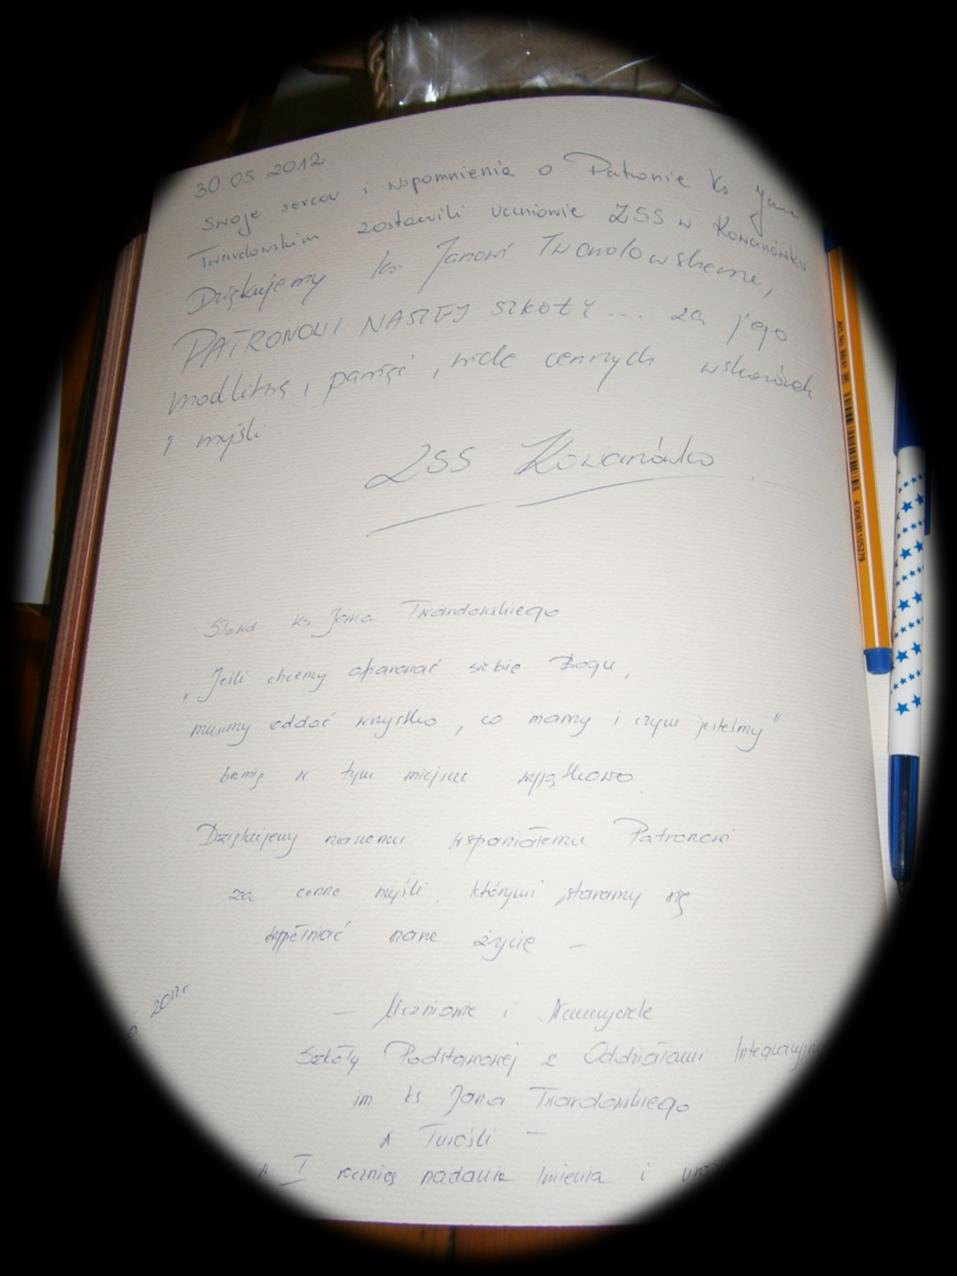 30.05.2012
Swoje serca i wspomnienia o Patronie Ks Jana
Twardowskim zostawili uczniowie ZSS w Kowanówku
Dziękujemy ks. Janowi Twardowskiemu,
PATRONOWI NASZEJ SZKOŁY ... za jego
modlitwę, pamięć, wiele cennych wskazówek
i myśli.
ZSS Kowanówko
Słowa ks. Jana Twardowskiego
„Jeśli chcemy ofiarować siebie Bogu,
musimy oddać wszystko, co mamy i czym jesteśmy"
brzmią w tym miejscu wyjątkowo.
Dziękujemy naszemu wspaniałemu Patronowi
za cenne myśli, którymi staramy się
wypełniać nasze życie –
– Uczniowie i Nauczyciele
Szkoły Podstawowej z Oddziałami Integracyjn
im ks Jana Twardowskiego
w Turośli –
w I rocznicę nadania Imienia i
2012r